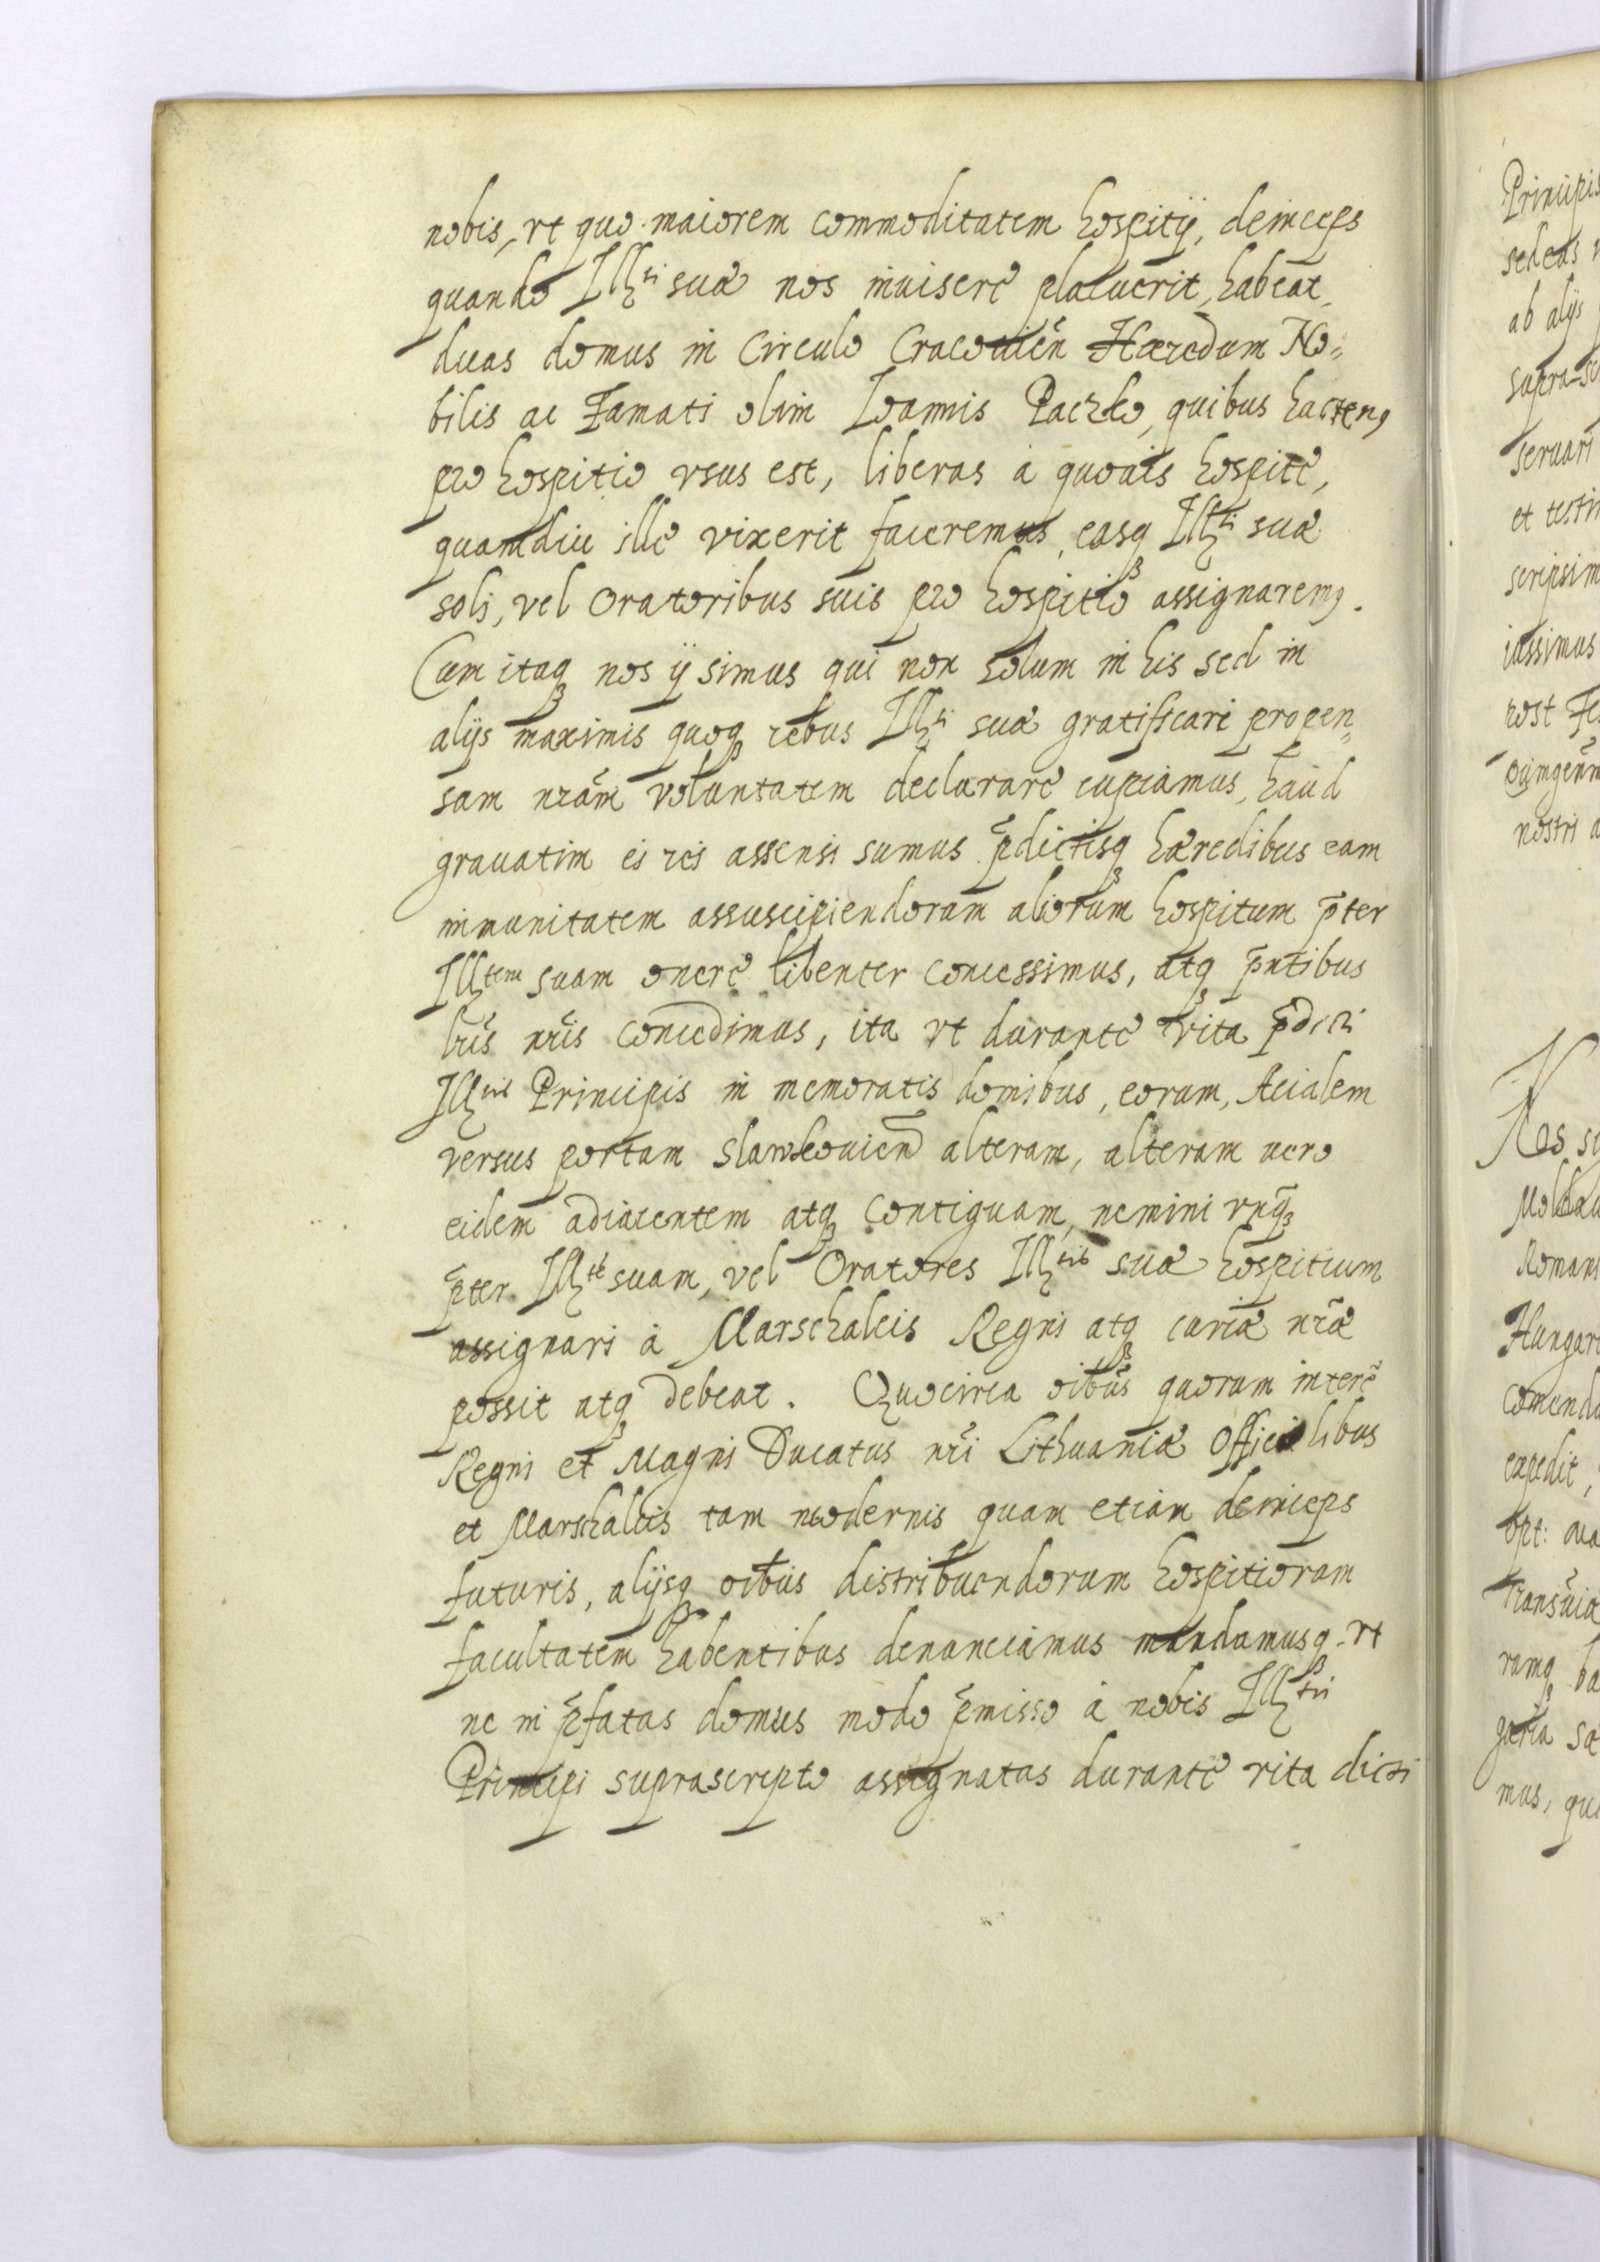 nobis, vt quo maiorem commoditatem hospitij, deinceps
quando Ill^ti suæ nos inuisere placuerit, habeat,
duas domus in Circulo Cracouień Hæredum No=
bilis ac Famati olim Ioannis Paczko, quibus hacteng
pro hospitio vsus est, liberas à quouis hospite,
quamdiu ille vixerit faceremus, easqȝ Ill^ti suæ
soli, vel Oratoribus suis pro hospitio assignaremꝰ.
Cum itaqȝ nos ij simus qui non solum in his sed in
alijs maximis quoqȝ rebus Ill^ti suæ gratificari propen=
sam nrãm voluntatem declarare cupiamus, haud
grauatim ei rei assensi sumus p̃dictisqȝ hæredibus eam
immunitatem assuscipiendorum aliorum hospitum p̃ter
Ill^tem suam onere libenter concessimus, atqȝ p̃ntibus
lrĩs nrĩs concedimus, ita vt durante vita p̃dicti
Ill^mi Principis in memoratis domibus, eorum, Acialem
versus portam Slawkouień alteram, alteram uero
eidem adiacentem atqȝ contiguam, nemini vnq̃ȝ
p̃ter Ill^tẽ suam, vel Oratores Ill^tis suæ hospitium
assignari à Marschalcis Regni atqȝ curiæ nrãe
possit atqȝ debeat. Quocirca oibũs quorum interẽ
Regni et Magni Ducatus nrĩ Lithuaniæ Officialibus
et Marschalcis tam modernis quam etiam deinceps
futuris, alijsqȝ oibũs distribuendorum hospitiorum
facultatem habentibus denunciamus mandamusqȝ vt
ne in p̃fatas domus modo p̃misso à nobis Ill^mi
Principi suprascripto assignatas durante vita dicti
Principis
sedeas
ab alijs
supra-sc
seruari
et testi
scripsim
iussimus
post Fes
Quingenm
nostri a
Nos si
Moldau
Romani
Hungari
Comenda
expedit,
opt: ma
Transuiæ
rumqȝ ba
garia sa
mus, qui